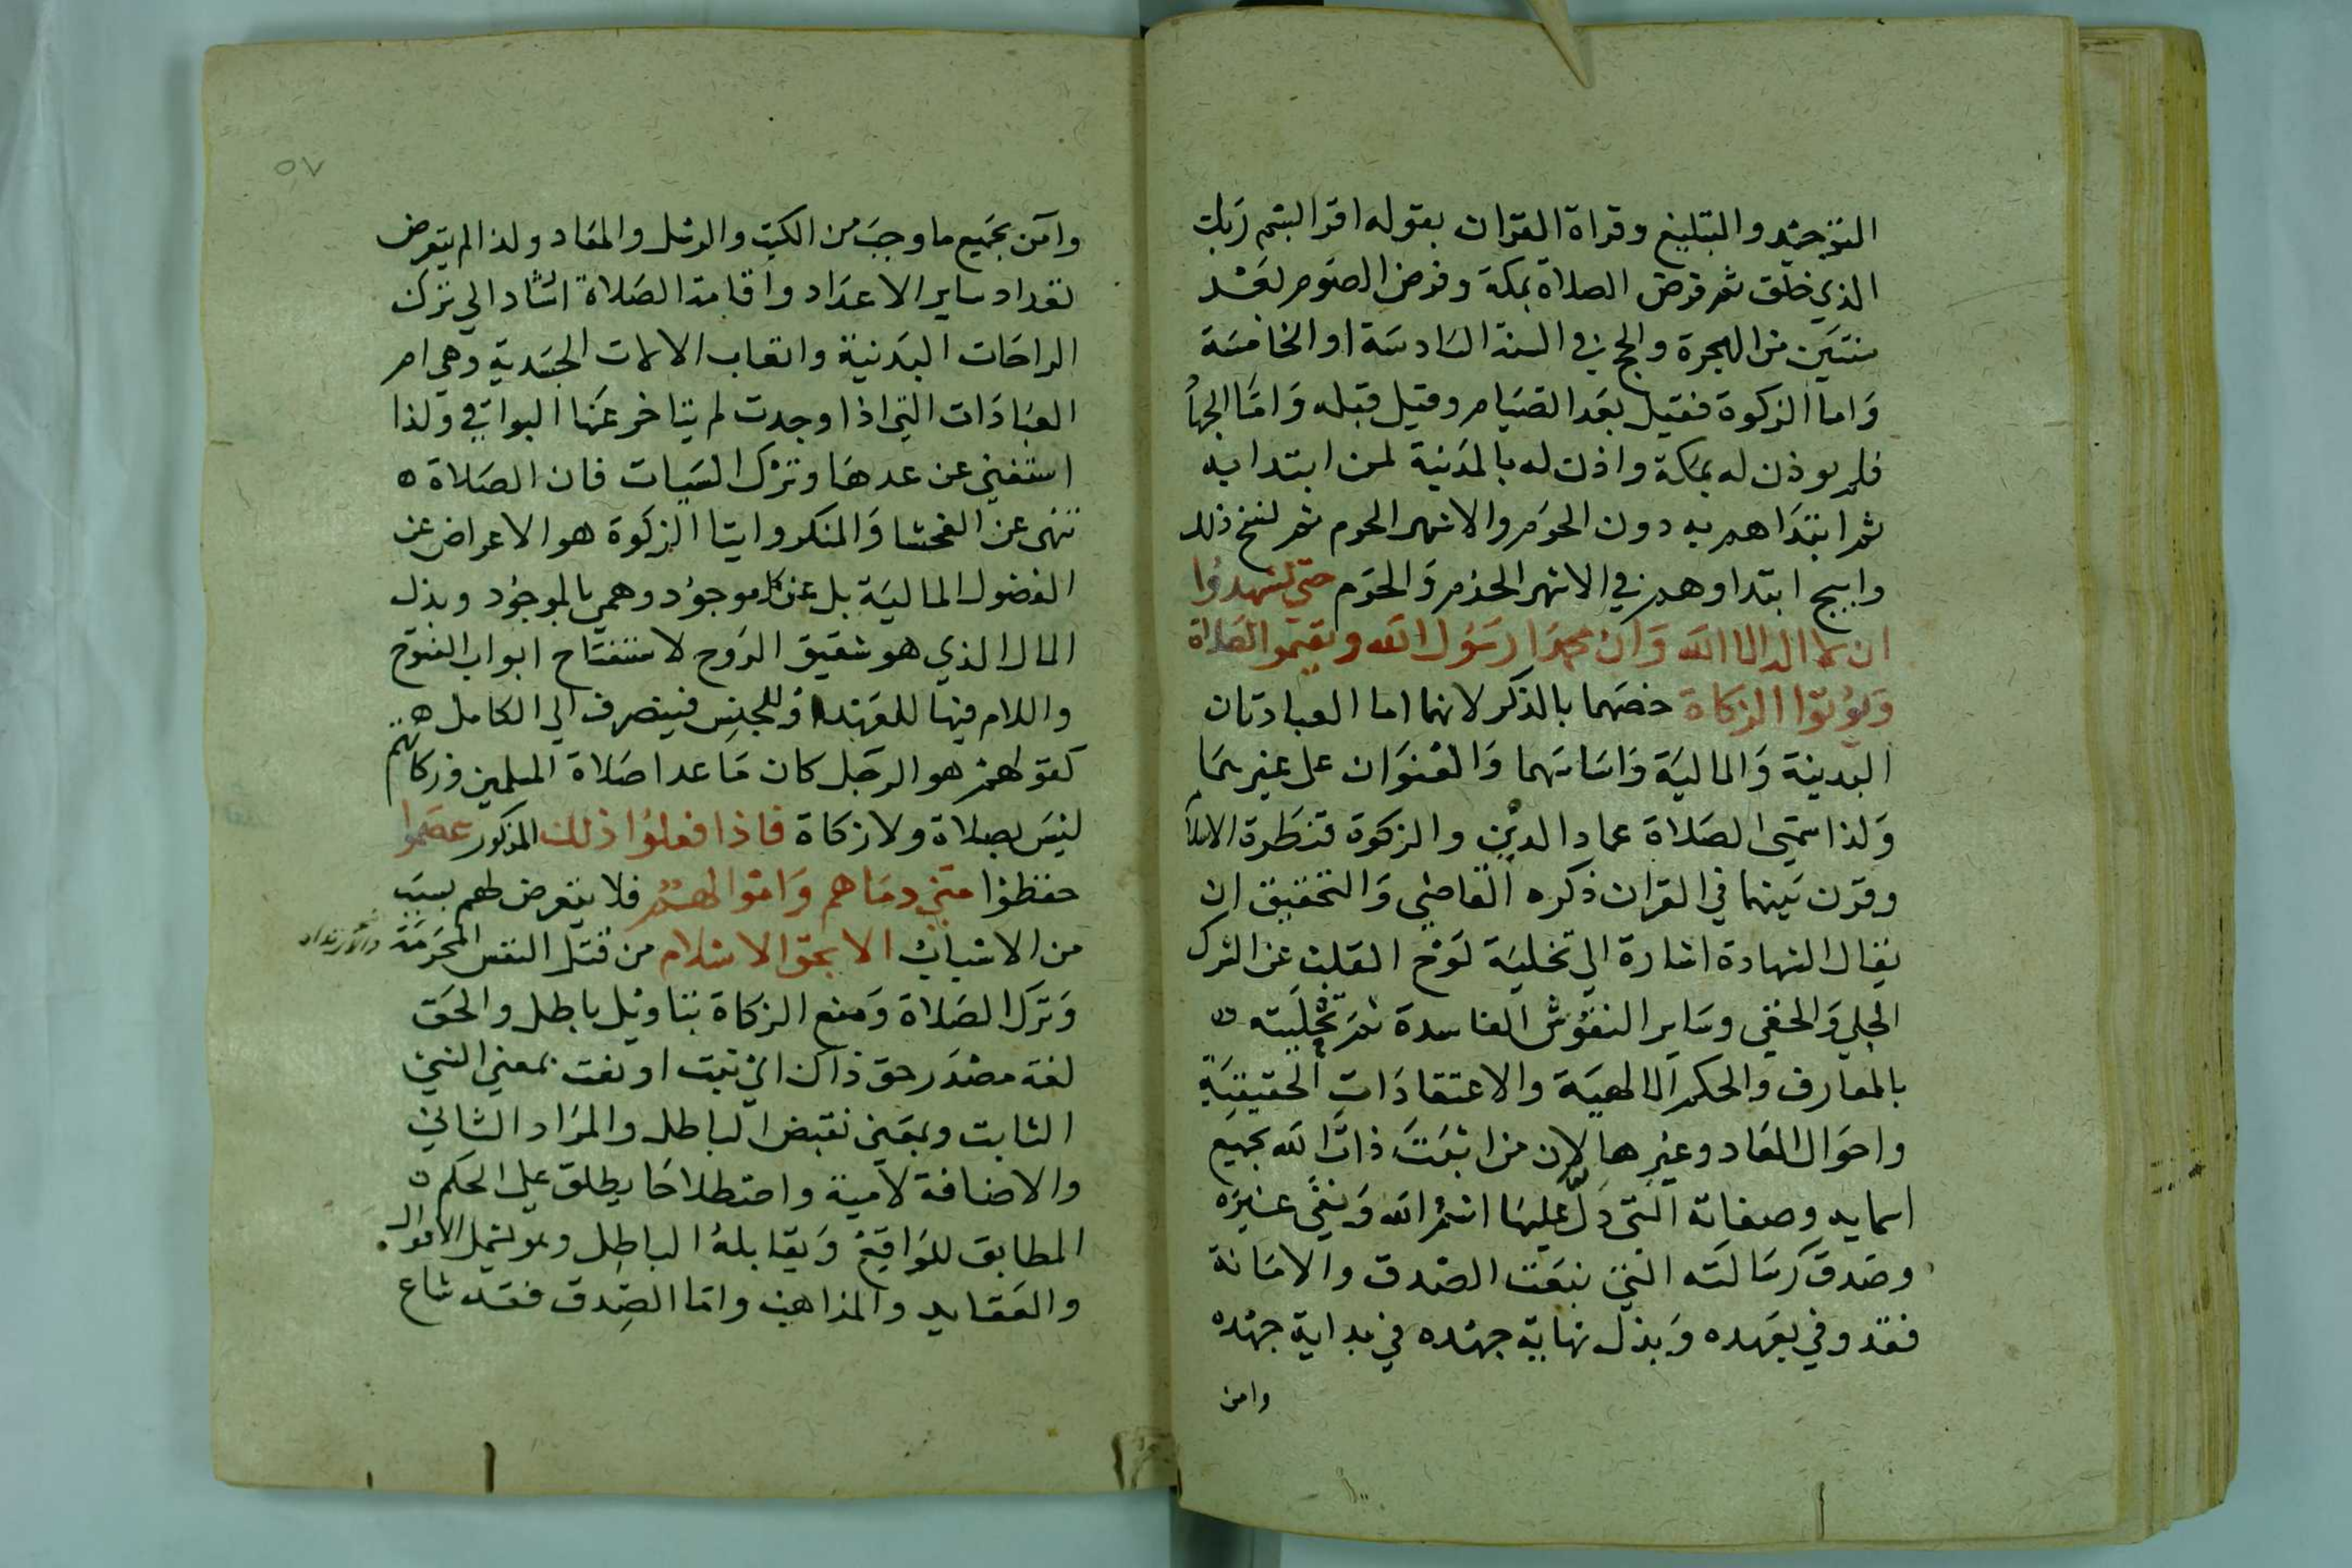 التوحيد والتبليغ وقراة القران بقوله اقرا باسم ربك
الذي خلق ثم فرض الصلاة بمكة وفرض الصوم بعد
سنتين من الهجرة والحج في السنة السادسة او الخامسة
واما الزكوة فقيل بعد الصيام وقيل قبله واما الجهاد
فلم يوذن له بمكة واذن له بالمدينة لمن ابتدا به
ثم ابتداهم به دون الحرم والاشهر الحرم ثم نسخ ذلك
وابيح ابتداوهم في الاشهر الحرم والحرم حتى يشهدوا
ان لا اله الا الله وان محمدا رسول الله ويقيموا الصلاة
ويوتوا الزكاة خصهما بالذكر لانهما اما العبادتان
البدينة والمالية واساسهما والعنوان على غيرهما
ولذا سمى الصلاة عماد الدين والزكوة قنطرة الاسلام
وقرن بينهما في القران ذكره القاضي والتحقيق ان
يقال الشهادة اشارة الى تخلية لوح القلب عن الشرك
الجلي والخفي وساير النقوش الفاسدة ثم تحليته
بالمعارف والحكم الالهية والاعتقادات الحقيقية
واحوال المعاد وغيرها لان من اثبت ذات الله بجميع
اسمايه وصفاته التي دل عليها اسم الله ونفى غيره
وصدق رسالته التي بنعت الصدق والامانة
فقد وفي بعهده وبذل نهاية جهده في بداية جهده
وامن
٥٧
وآمن بجميع ما وجب من الكتب والرسل والمعاد ولذا لم يتعرض
لعداد ساير الاعداد واقامة الصلاة اشاد الي ترك
الراحات البدنية واتعاب الالات الجسدية وهي ام
العبادات التي اذا وجدت لم يتاخر عنها البواقي ولذا
استغني عن عدها وترك السيات فان الصلاة ٥
تنهى عن الفحشا والمنكر وايتا الزكوة هو الاعراض عن
الفضول المالية بل عن كل موجود وهمي بالموجود وبذل
المال الذي هو شقيق الروح لاستفتاح ابواب الفتوح
واللام فيها للعهد او للجنس فينصرف الي الكامل
كقولهم هو الرجل كان ما عدا صلاة المسلمين وزكاتهم
ليس بصلاة ولا زكاة فاذا فعلوا ذلك المذكور عصموا
حفظوا مني دماهم واموالهم فلا يتعرض لهم بسبب
من الاسباب الا بحق الاسلام من قتل النفس المحرمة
وترك الصلاة ومنع الزكاة بتاويل باطل والحق
لغة مصدر حق ذاك اي ثبت او نعت بمعني الشي
الثابت وبمعني نقيض الباطل والمراد الثاني
والاضافة لامية واصطلاحا يطلق علي الحكم ٥
المطابق للواقع ويقابله الباطل وهو يشمل الاقوال
والعقايد والمذاهب واما الصدق فقد شاع